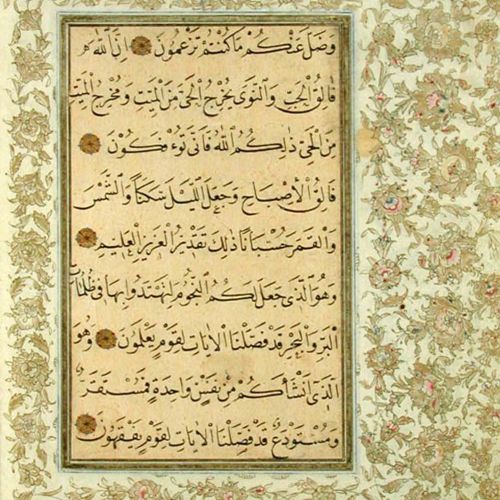 وَضَلَّ عَنْكُمْ مَا كُنْتُمْ تَزْعُمُونَ اِنَّ اللّٰهَ
فَالِقُ الْحَبِّ وَالنَّوٰى يُخْرِجُ الْحَيَّ مِنَ الْمَيِّتِ وَمُخْرِجُ الْمَيِّتِ
مِنَ الْحَيِّ ذٰلِكُمُ اللّٰهُ فَاَنّٰى تُؤْفَكُونَ
فَالِقُ الْاَصْبَاحِ وَجَعَلَ اللَّيْلَ سَكَنًا وَالشَّمْسَ
وَالْقَمَرَ حُسْبَانًا ذٰلِكَ تَقْدِيرُ الْعَزِيزِ الْعَلِيمِ
وَهُوَ الَّذِى جَعَلَ لَكُمُ النُّجُومَ لِتَهْتَدُوا بِهَا فِى ظُلُمَاتِ
الْبَرِّ وَالْبَحْرِ قَدْ فَصَّلْنَا الْاٰيَاتِ لِقَوْمٍ يَعْلَمُونَ وَهُوَ
الَّذِى اَنْشَاَكُمْ مِنْ نَفْسٍ وَاحِدَةٍ فَمُسْتَقَرٌّ
وَمُسْتَوْدَعٌ قَدْ فَصَّلْنَا الْاٰيَاتِ لِقَوْمٍ يَفْقَهُونَ